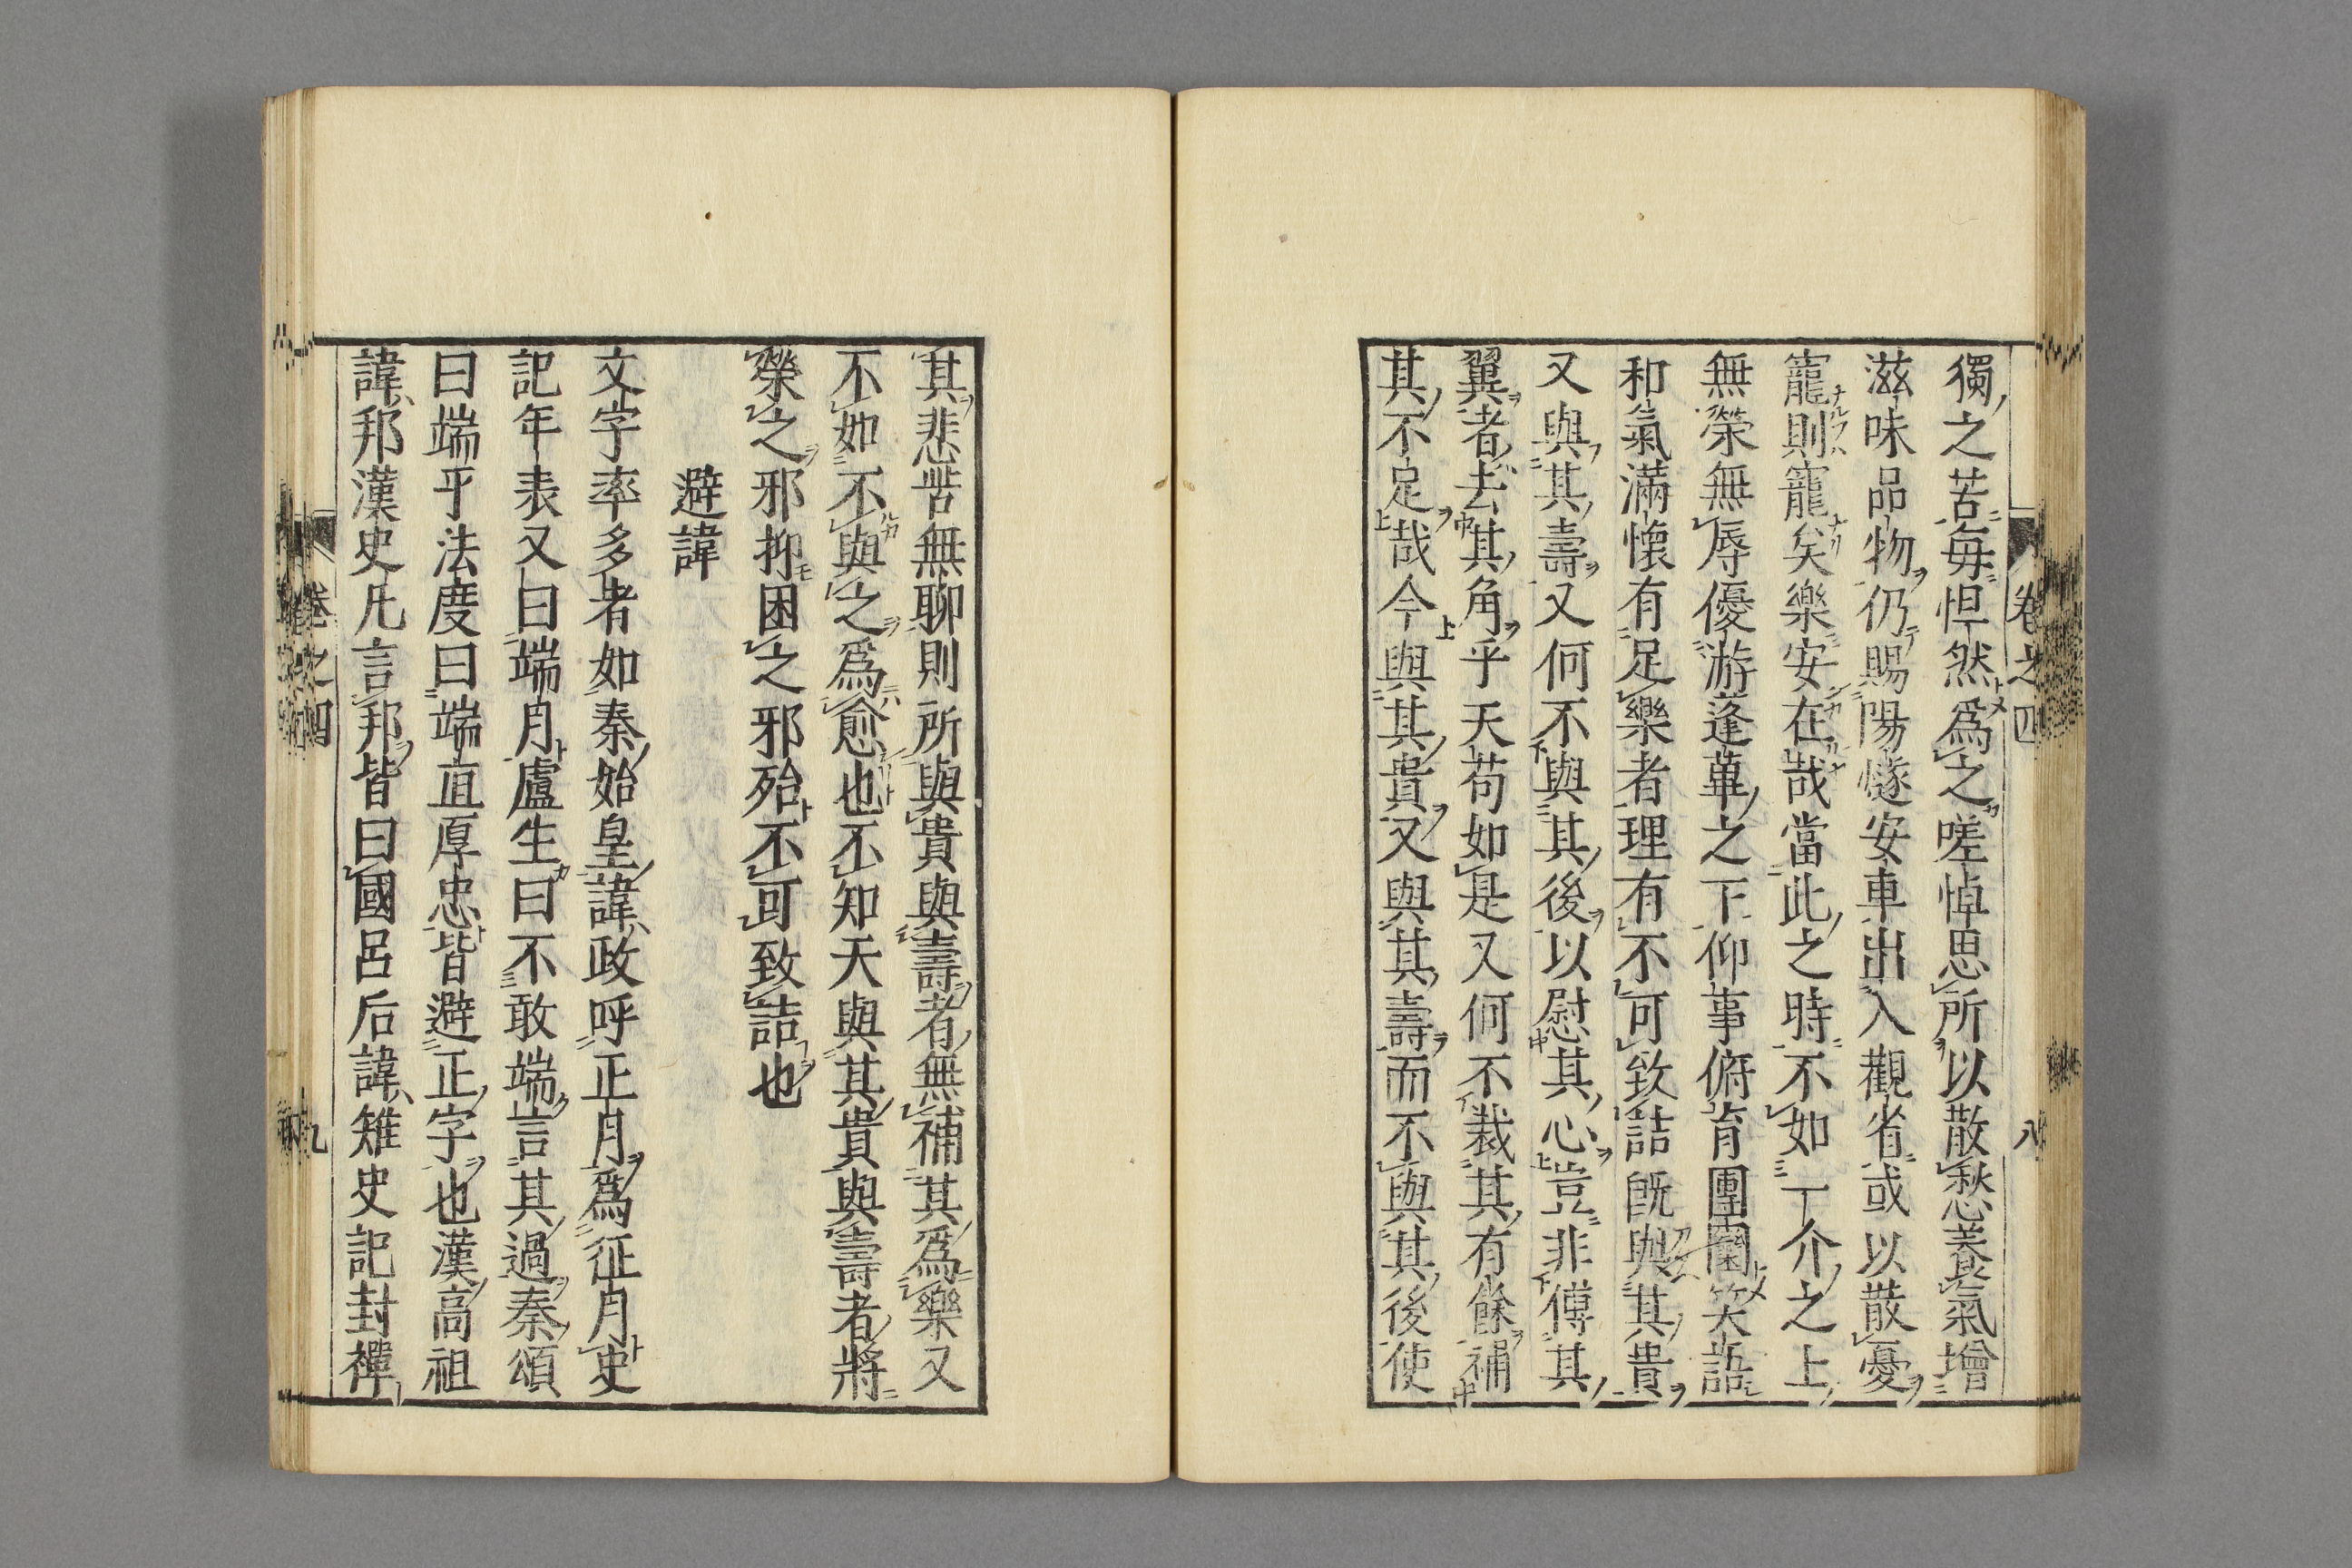 獨之苦每怛然爲之嗟悼思所以散愁養氣增
滋味品物仍賜陽燧安車出入觀省或以散憂
寵則寵矣樂安在哉當此之時不如一介之上
無榮無辱優游蓬蓽之下仰事俯育團欒笑語
和氣滿懷有足樂者理有不可致詰旣與其貴
又與其壽又何不與其後以慰其心豈非傅其
翼者去其角乎天苟如是又何不裁其有餘補
其不足哉今與其貴又與其壽而不與其後使
卷之四
八
其悲苦無聊則所與貴與壽者無補其爲樂又
不如不與之爲愈也不知天與其貴與壽者將
榮之邪抑困之邪殆不可致詰也
避諱
文字率多者如秦始皇諱政呼正月爲征月史
記年表又曰端月盧生曰不敢端言其過秦頌
曰端平法度曰端直厚忠皆避正字也漢高祖
諱邦漢史凡言邦皆曰國呂后諱雉史記封禪
卷之四
九